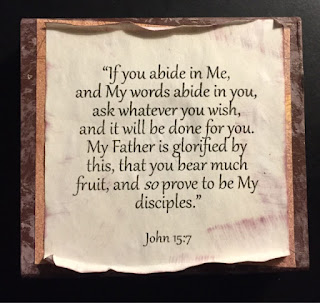 “If you abide in Me,
and My words abide in you,
ask whatever you wish,
and it will be done for you.
My Father is glorified by
this, that you bear much
fruit, and so prove to be My
disciples.”
John 15:7